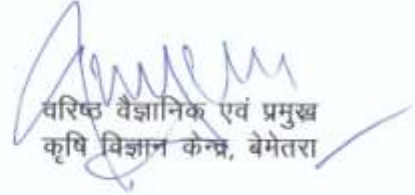 वरिष्ठ वैज्ञानिक एवं प्रमुख
कृषि विज्ञान केन्द्र, बेमेतरा